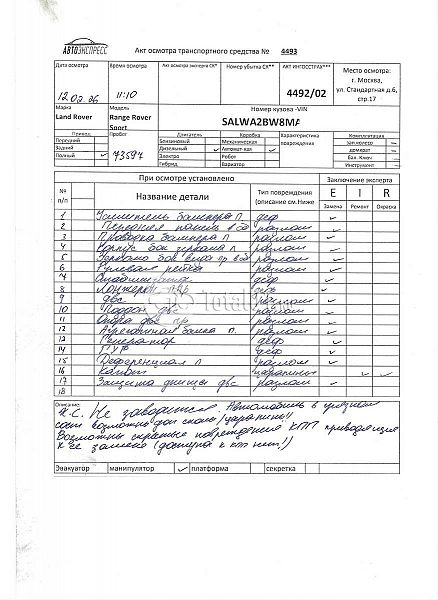 АВТОЭКСПРЕСС
Акт осмотра транспортного средства № 4493
Дата осмотра Время осмотра Акт осмотра эксперта СК** Номер убытка СК** АКТ ИНГОССТРАХ*** Место осмотра:
г. Москва,
ул. Стандартная д.6,
стр.17
11:10 4492/02
Марка Модель Номер кузова -VIN
Land Rover Range Rover Sport SALWA2BW8MA
Привод Пробег Двигатель Коробка Характеристика повреждения Комплектация
Передний Бензиновый Механическая зап.колесо
Задний Дизельный Автомат-кая домкрат
Полный 73597 Электро Робот Бал. Ключ
Гибрид Вариатор Инструмент
При осмотре установлено Заключение эксперта
№ п/п Название детали Тип повреждения (описание см.Ниже E I R
Замена Ремонт Окраска
1 Усилитель бампера П. деф
2 Передняя панель в сб разлом
3 Проводка бампера П разлом
4 Корпус бок зеркала П разлом
5 разлом
6 Рулевая рейка разлом
7 деф
8 Лонжерон деф
9 двс разлом
10 Поддон двс разлом
11 Опора двс разлом
12 Агрегатная балка П. разлом
13 Генератор деф
14 деф
15 Дифференциал П разлом
16 Капот царапины
17 Защита днища двс разлом
18
Описание:
Н.С. Не заводится. Автомобиль в грязном
сост возможны доп сколы/царапины!!
Возможны скрытые повреждения КПП приводящие
к её замене (доступа к кпп нет!!)
Эвакуатор манипулятор платформа секретка
Total